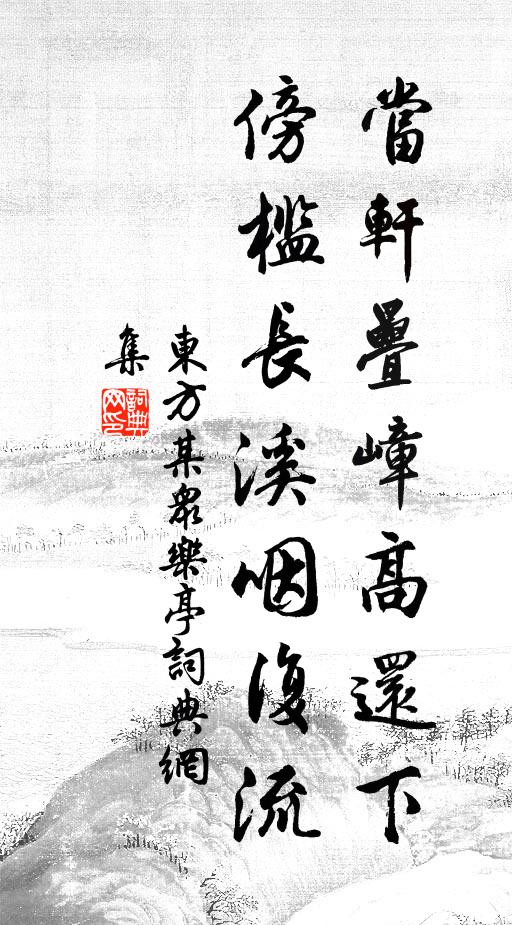 當軒疊嶂高還下
傍檻長溪咽復流
東方某眾樂亭詞典網
集
詞典網印